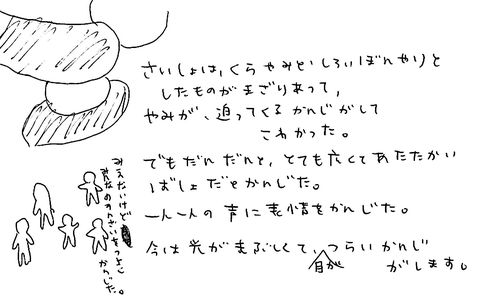 さいしょは、くらやみとしろいぼんやりと
したものがまざりあって、
やみが、迫ってくるかんじがして
こわかった。
でもだんだんと、とても広くてあたたかい
ばしょだとかんじた。
一人一人の声に表情をかんじた。
今は光がまぶしくて、目がつらいかんじ
がします。
みえないけど
みんなのそんざいをつよく
かんじた。